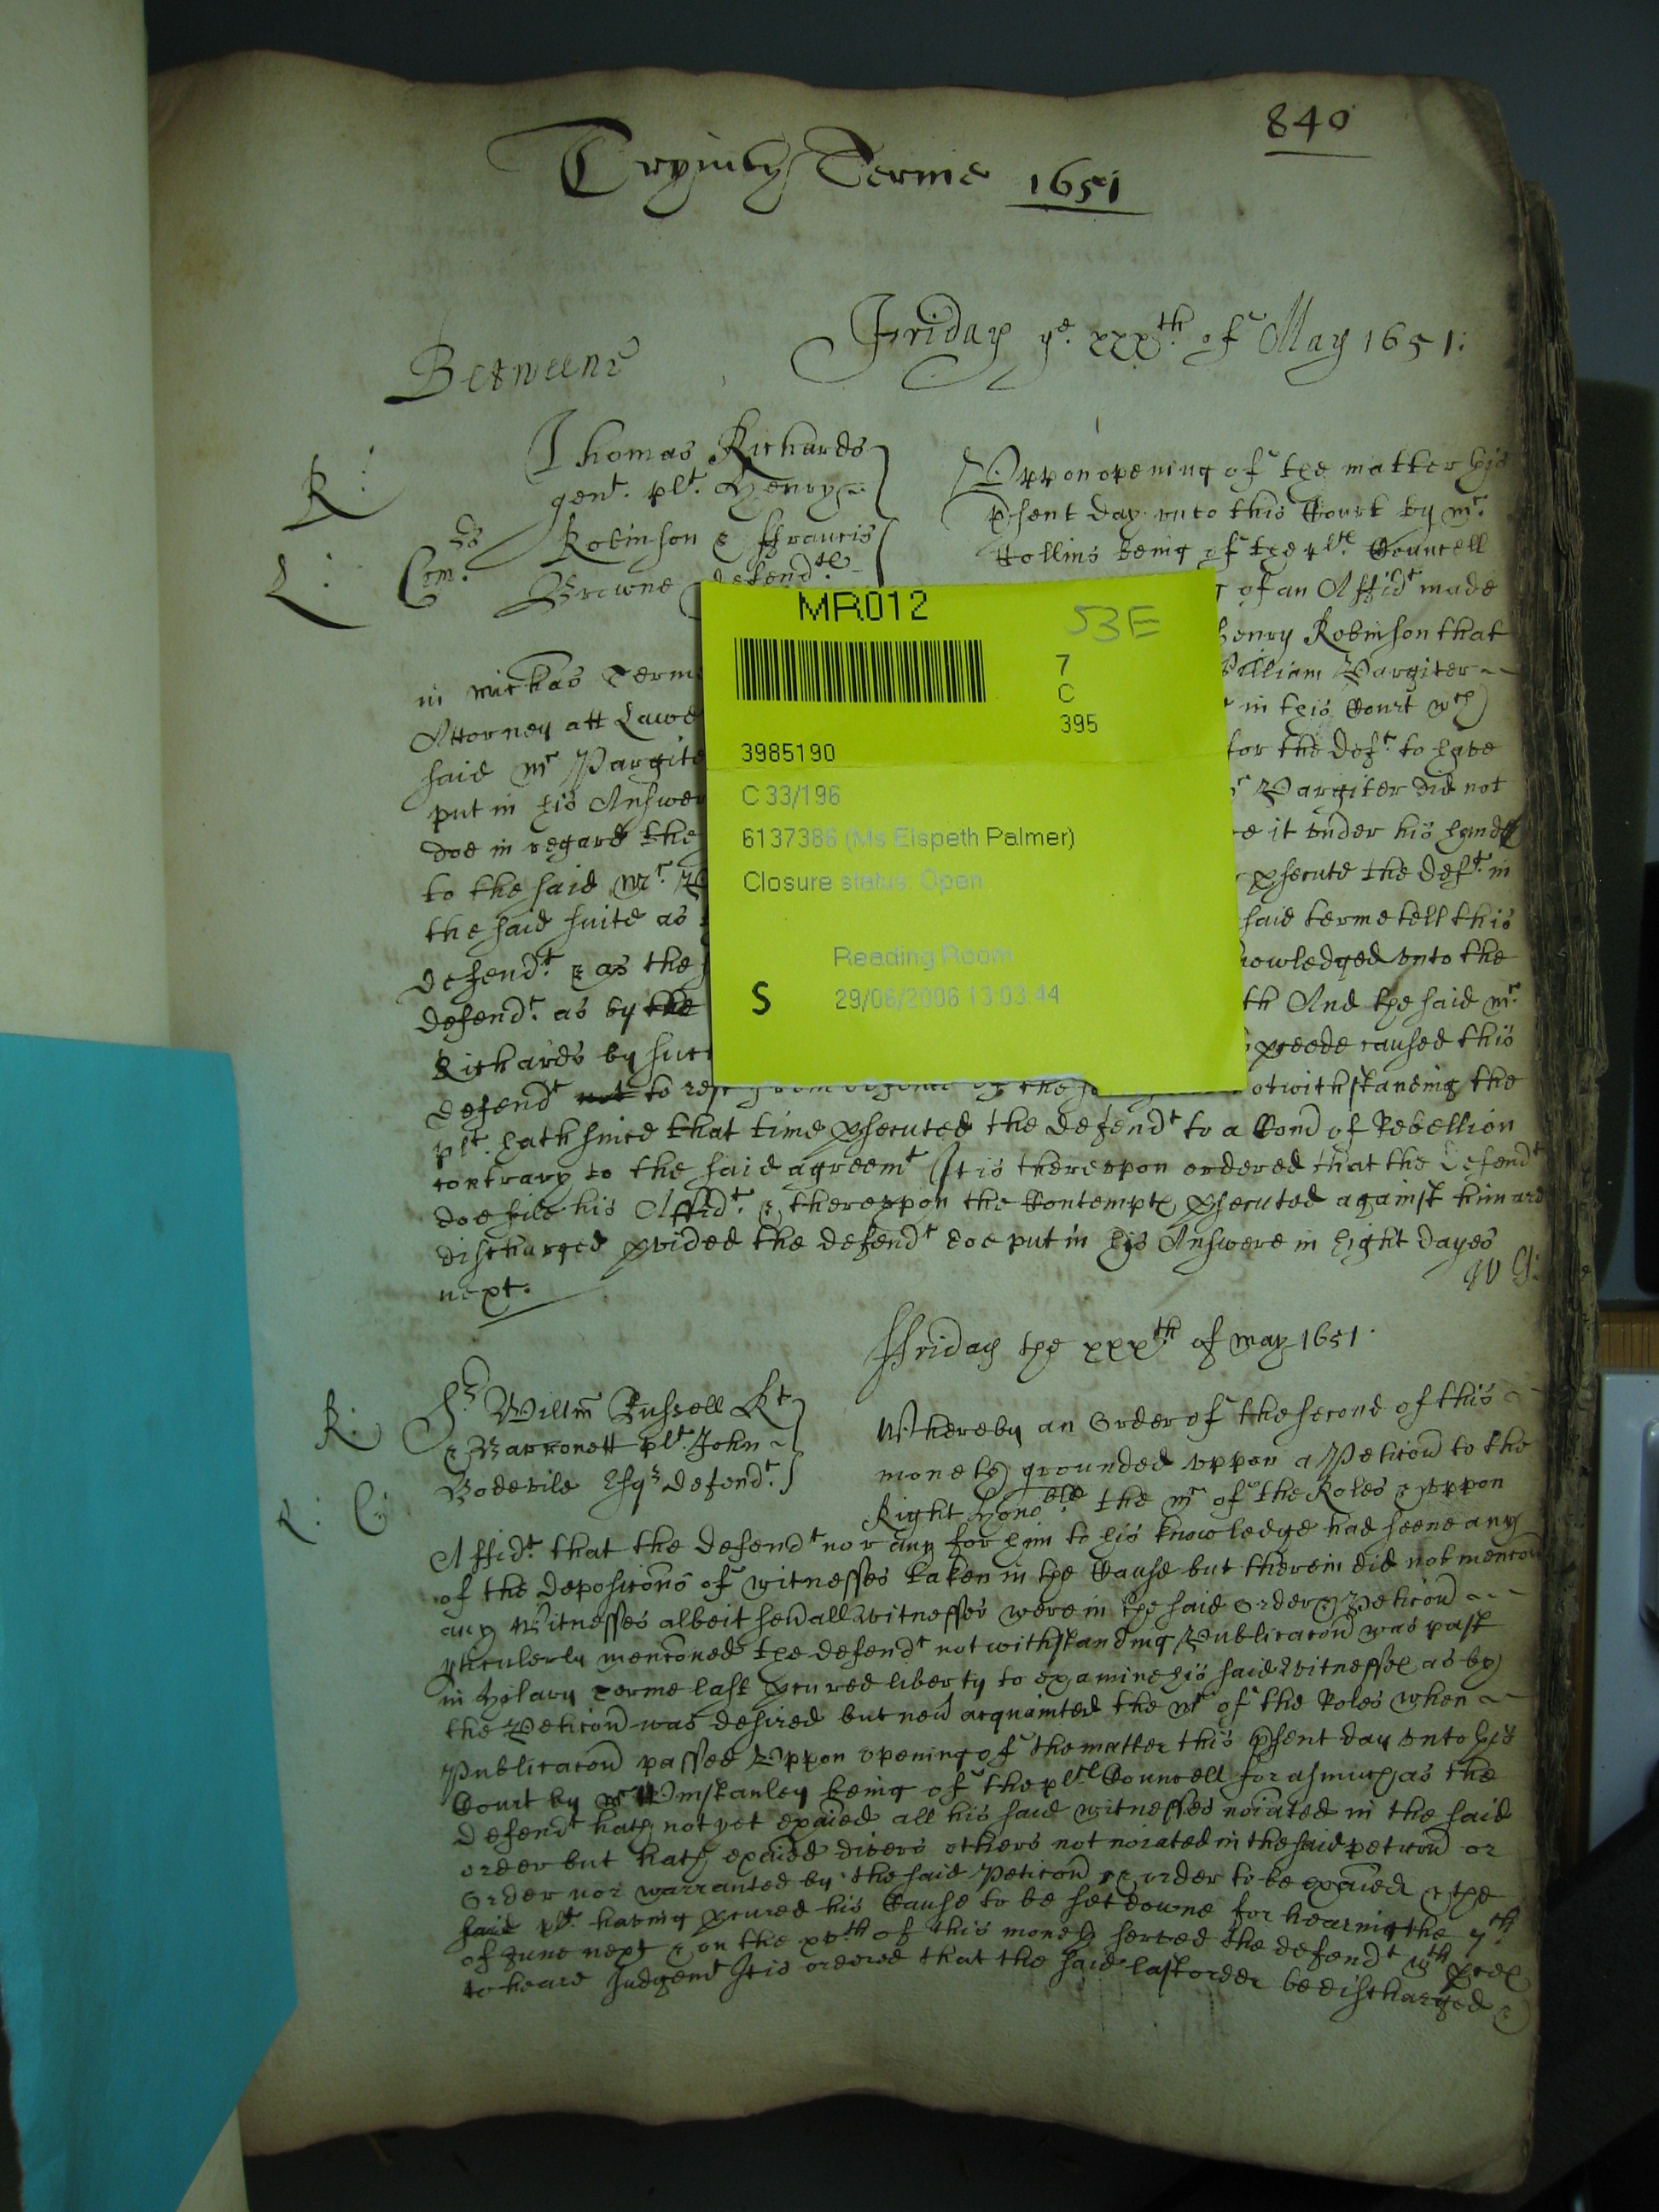 840
Trynity Terme 1651
Friday ye. xxxth. of May 1651:
Betweene
Thomas Richards
gent. plt. Henry
Robinson & ffrancis
Browne defendte
R:
L:
Com.
Vppon opening of the matter this
pħsent day vnto this Court by mr.
Hollins being of the plte. Councell
of an Affidt made
Henry Robinson that
in Michas Terme
William Pargiter
Attorney att Lawe
in this Court wch
said mr Pargite
for the deft. to have
put in his Answer
Pargiter did not
doe in regard the
it vnder his hande
to the said mr.
psecute the deft. in
the said suite as
said terme tell this
defendt. & as the
nowledged vnto the
defendt. as by the
th And the said mr.
Richards by such
caused this
defendt not to rest from defence of the
otwithstanding the
plt. hath since that time psecuted the defendt to a Comd of Rebellion
contrary to the said agreemt It is therevpon ordered that the defendt
doe file his Affidt. & therevpon the Contempte psecuted against him are
discharged pvided the defendt doe put in his Answere in Eight dayes
next.
ffriday the xxxth. of may 1651.
Sr Willm Russell Kt
& Barronett plt. John
Bodevile Esqr defendt.
R:
R:
Whereby an Order of the second of this
moneth grounded vppon a Peticon to the
Right Honoble the mr of the Roles & vppon
Affidt. that the defendt nor any for him to his knowledge had seene any
of the deposicons of witnesses taken in the Cause but therein did not mencon
any Witnesses albeit sevall witnesses were in the said order & Peticon
pticulerly menconed the defendt notwithstanding Publicacon was past
in Hilary terme last pcured liberty to examine his said Witnesses as by
the Peticon was desired but nev acquainted the mr of the Roles when
Publicacon passed Vppon opening of the matter this psent day vnto this
Court by mr Winstanley being of the plte Councell for asmuch as the
defendt hath not yet exaied all his said witnesses noiated in the said
order but hath exaied divers others not noiated in the said peticon or
Order nor warranted by the said Peticon or order to be exaied & the
said plt. having pcured his Cause to be set downe for hearing the 7th
of June next & on the xvth of this moneth served the defendt wth
to heare Judgemt It is ordered that the said last order be discharged &
MR012
53E
7
C
395
3985190
C 33/196
6137386 (Ms Elspeth Palmer)
Closure status: Open
Reading Room
S
29/06/2006 13:03:44